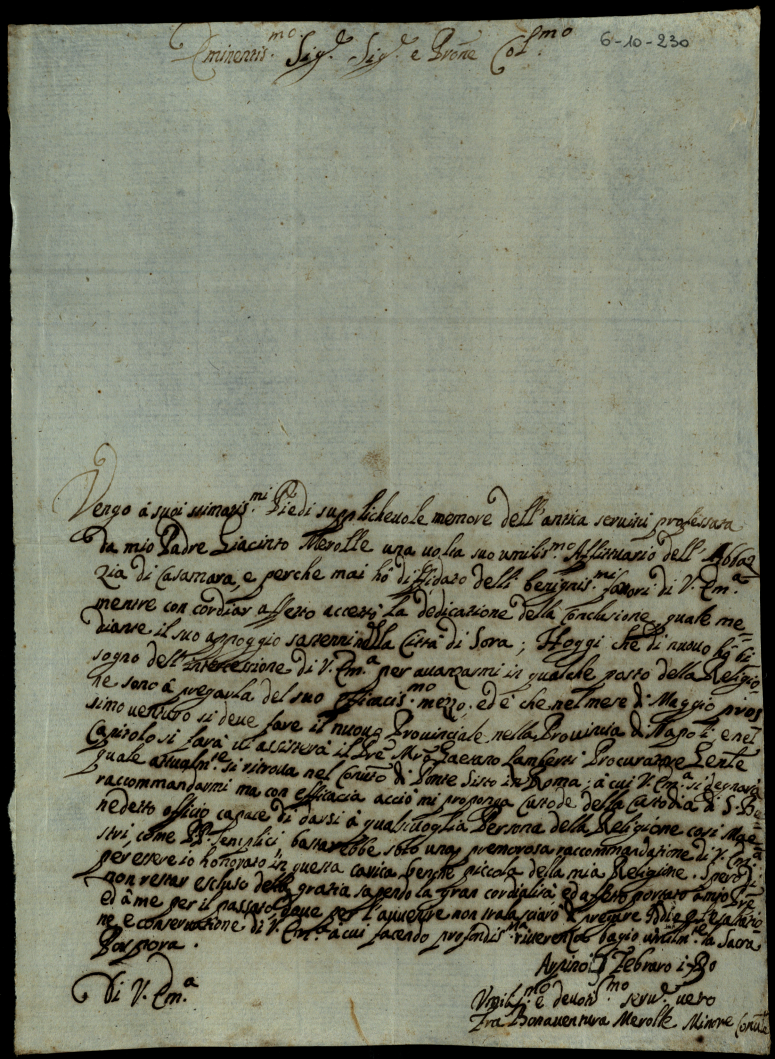 Eminentis.mo Sig.e Sig.e e Prone Col.mo 6-10-230
Vengo à suoi stimatis.mi Piedi supplichevole memore dell'antica servitù professata
da mio Padre Giacinto Merolle una volta suo umilis.mo Affittuario dell'Abbaz
zia di Casamara, e perche mai hò diffidato delli benignis.mi favori di V. Em.a
mentre con cordiar affetto accettò la dedicazione della Conclusione, quale me=
diante il suo appoggio sostenni nella Città di Sora; Hoggi che di nuovo hò bi=
sogno dell'intercessione di V. Em.a per avanzarmi in qualche posto della Religio=
ne sono à pregarla del suo efficacis.mo mezzo. ed è che nel mese di Maggio pros
simo venturo si deve fare il nuovo Provinciale nella Provincia di Napoli e nel
Capitolo si farà vi assisterà il Pre Mro Gaetano Lamberti Procuratore
quale attualm.te si ritrova nel Convto di Ponte Sisto in Roma; à cui V. Em.a si degnarà
raccommandarmi ma con efficacia acciò mi proponga Custode della Custodia di S. Be=
nedetto officio capace di darsi à qualsivoglia Persona della Religione così Mae=
stri, come PP. semplici, bastarebbe solo una premorosa raccommandazione di V. Em.a
per essere io honorato in questa carica, benche piccola della mia Religione. Spero di
non restar escluso della grazia sapendo la gran cordialità, ed affetto portato à mio Pre
ed à me per il passato, dove per l'avvenire non tralasciarò di pregare Iddio
ne e conservazione di V. Em.a à cui facendo profondis.ma riverenza bagio umilm.te la Sacra
Porpora.
Arpino Febraro
Di V. Em.a
Umilis.mo e devotis.mo serv.e vero
Fra Bonaventura Merolle Minore Convle